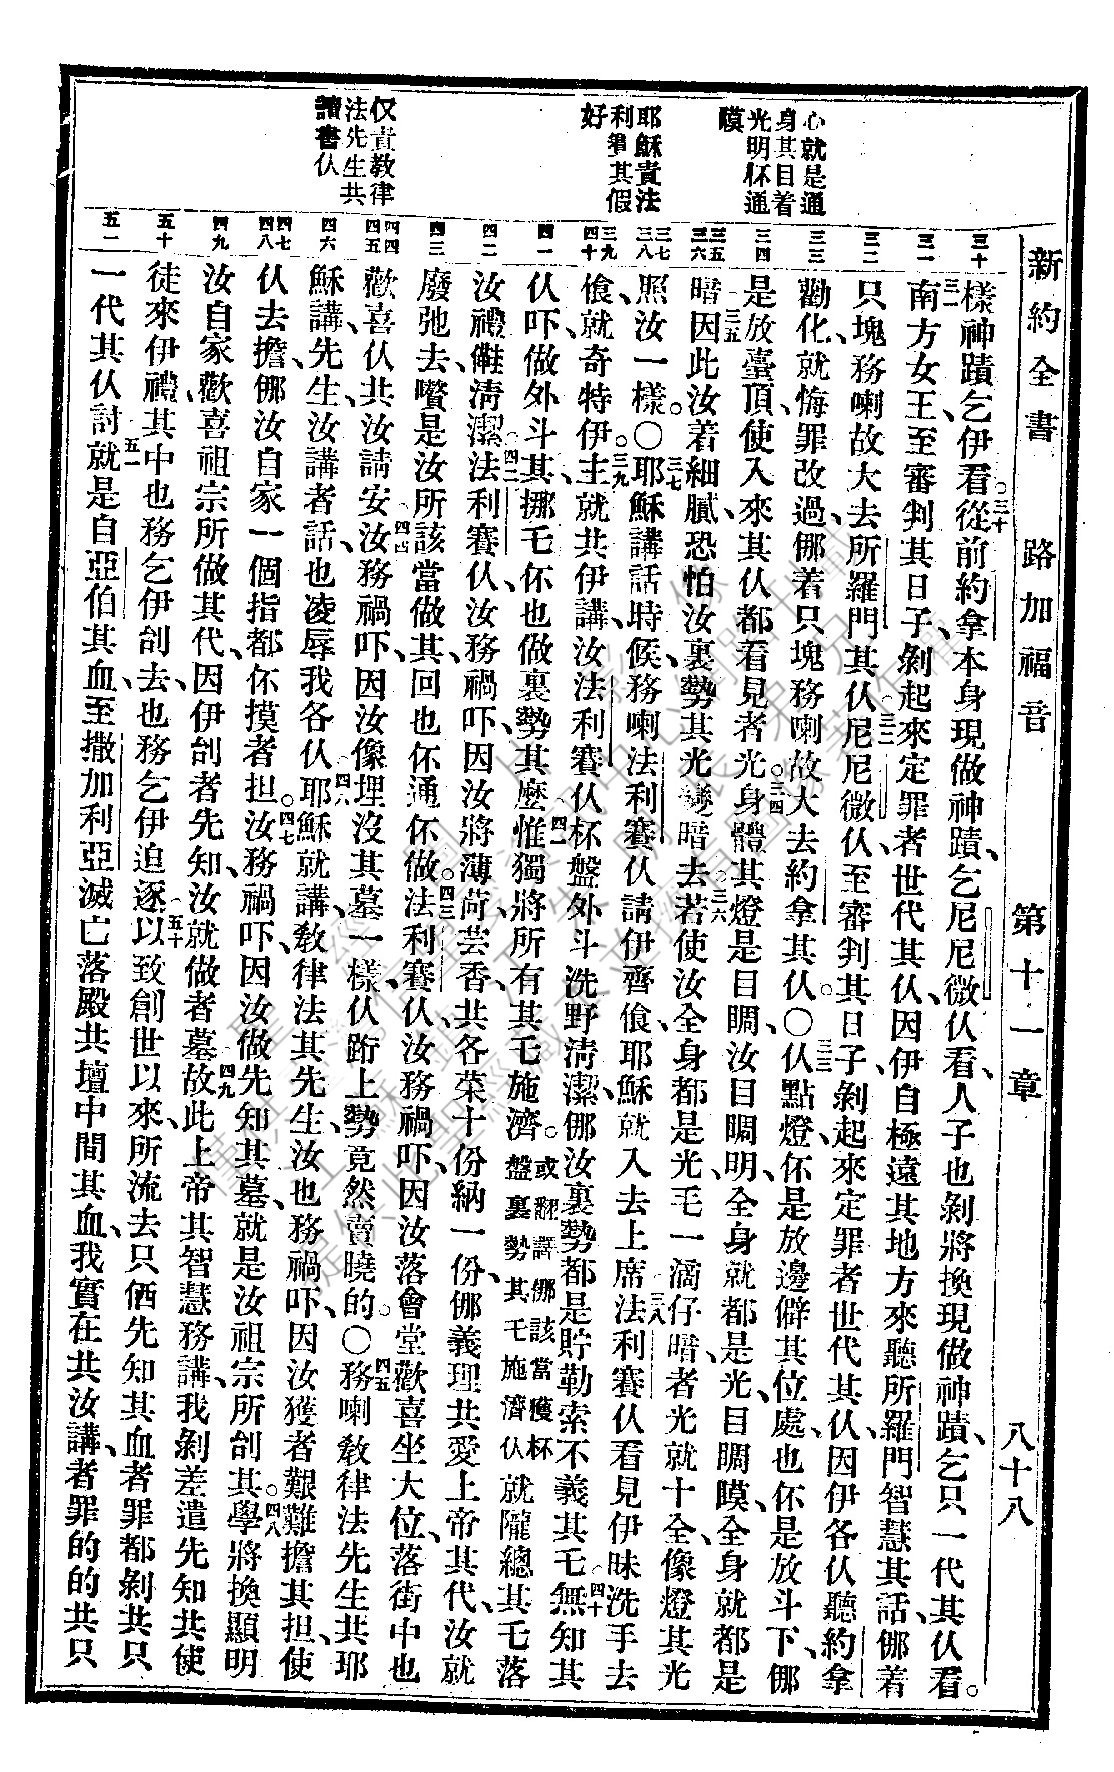 新約全書 路加福音 第十一章 八十八
心就是通
身其目着
光明怀通
瞙
耶穌責法
利賽其假
好
仅責教律
法先生共
讀書仈
三十
三一
三二
三三
三四
三五
三六
三七
三八
三九
四十
四一
四二
四三
四四
四五
四六
四七
四八
四九
五十
五一
樣神蹟乞伊看。三十從前約拿本身現做神蹟、乞尼尼微仈看、人子也剝將換現做神蹟、乞只一代其仈看。
三一南方女王至審判其日子、剝起來定罪者世代其仈、因伊自極遠其地方來聽所羅門智慧其話、㑚着
只塊務喇故大去所羅門其仈。三二尼尼微仈、至審判其日子、剝起來定罪者世代其仈、因伊各仈聽約拿
勸化、就悔罪改過、㑚着只塊務喇故大去約拿其仈。〇三三仈點燈、伓是放邊僻其位處、也伓是放斗下、㑚
是放臺頂、使入來其仈都看見者光。三四身體其燈是目睭、汝目睭明、全身就都是光、目睭瞙、全身就都是
暗。三五因此汝着細膩、恐怕汝裏勢其光變暗去。三六若使汝全身都是光、乇一滴仔暗、者光就十全、像燈其光
照汝一樣。〇三七耶穌講話時候、務喇法利賽仈請伊齊飡、耶穌就入去上席。三八法利賽仈看見伊昧洗手去
飡、就奇特伊。三九主就共伊講、汝法利賽仈、杯盤外斗洗野清潔、㑚汝裏勢都是貯勒索不義其乇。四十無知其
仈吓、做外斗其、挪乇伓也做裏勢其麼。四一惟獨將所有其乇施濟。或翻譯㑚該當獲杯盤裏勢其乇施濟仈就隴總其乇落
汝禮㒾清潔。四二法利賽仈、汝務禍吓、因汝將薄荷芸香、共各菜十份納一份、㑚義理共愛上帝其代、汝就
廢弛去、嚽是汝所該當做其、回也伓通伓做。四三法利賽仈、汝務禍吓、因汝落會堂歡喜坐大位、落街中也
歡喜仈共汝請安。四四汝務禍吓、因汝像埋沒其墓一樣、仈䟰上勢竟然賣曉的。〇四五務喇教律法先生共耶
穌講、先生、汝講者話、也凌辱我各仈。四六耶穌就講、教律法其先生、汝也務禍吓、因汝獲者艱難擔其担、使
仈去擔、㑚汝自家一個指都伓摸者担。四七汝務禍吓、因汝做先知其墓、就是汝祖宗所刣其。四八學將換顯明
汝自家、歡喜祖宗所做其代、因伊刣者先知、汝就做者墓。四九故此上帝其智慧務講、我剝差遣先知共使
徒來伊禮、其中也務乞伊刣去、也務乞伊迫逐。五十以致創世以來、所流去只俤先知其血者罪都剝共只
一代其仈討。五一就是自亞伯其血、至撒加利亞滅亡落殿共壇中間其血、我實在共汝講、者罪的的共只